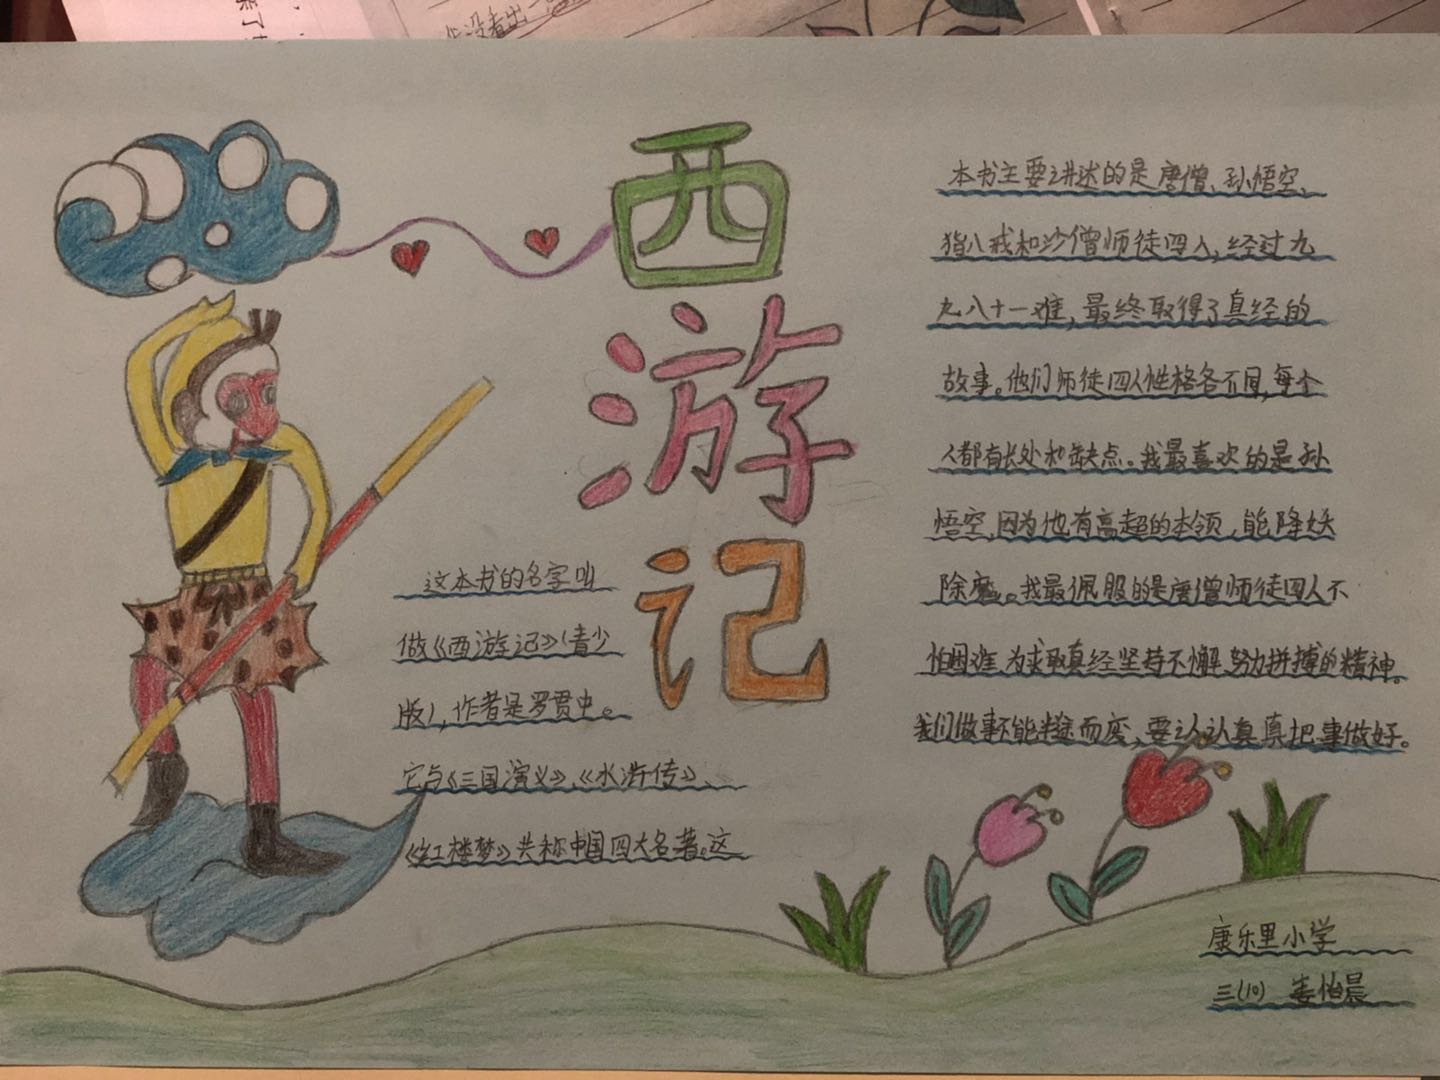 西
游
记
这本书的名字叫
做《西游记》（青少
版），作者是罗贯中。
它与《三国演义》、《水浒传》、
《红楼梦》共称中国四大名著。这
本书主要讲述的是唐僧、孙悟空、
猪八戒和沙僧师徒四人，经过九
九八十一难，最终取得了真经的
故事。他们师徒四人性格各不同，每个
人都有长处和缺点。我最喜欢的是孙
悟空，因为他有高超的本领，能降妖
除魔。我最佩服的是唐僧师徒四人不
怕困难，为求取真经坚持不懈，努力拼搏的精神。
我们做事不能半途而废，要认认真真把事做好。
康乐里小学
三（10） 娄怡晨